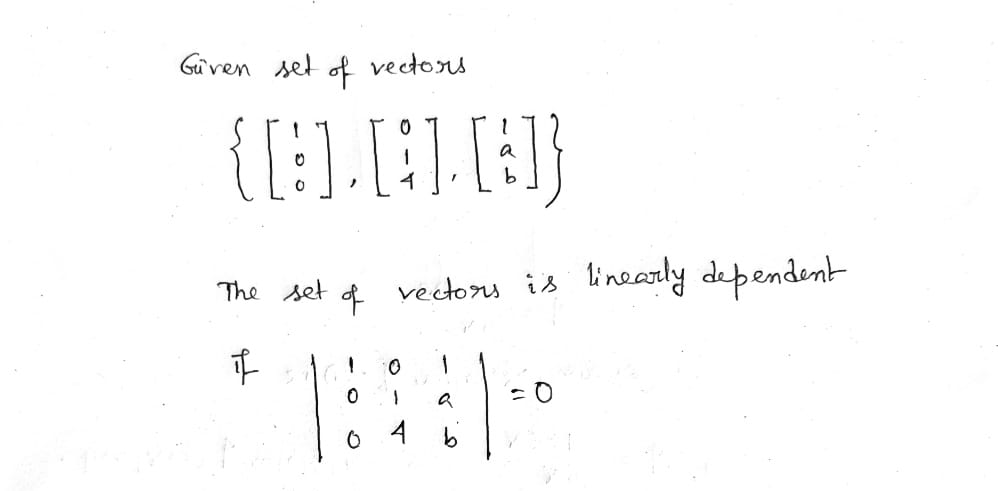 Given set of vectors
{ [ 1 0 0 ] , [ 0 1 4 ] , [ 1 a b ] }
The set of vectors is linearly dependent
if | 1 0 1 |
| 0 1 a | = 0
| 0 4 b |